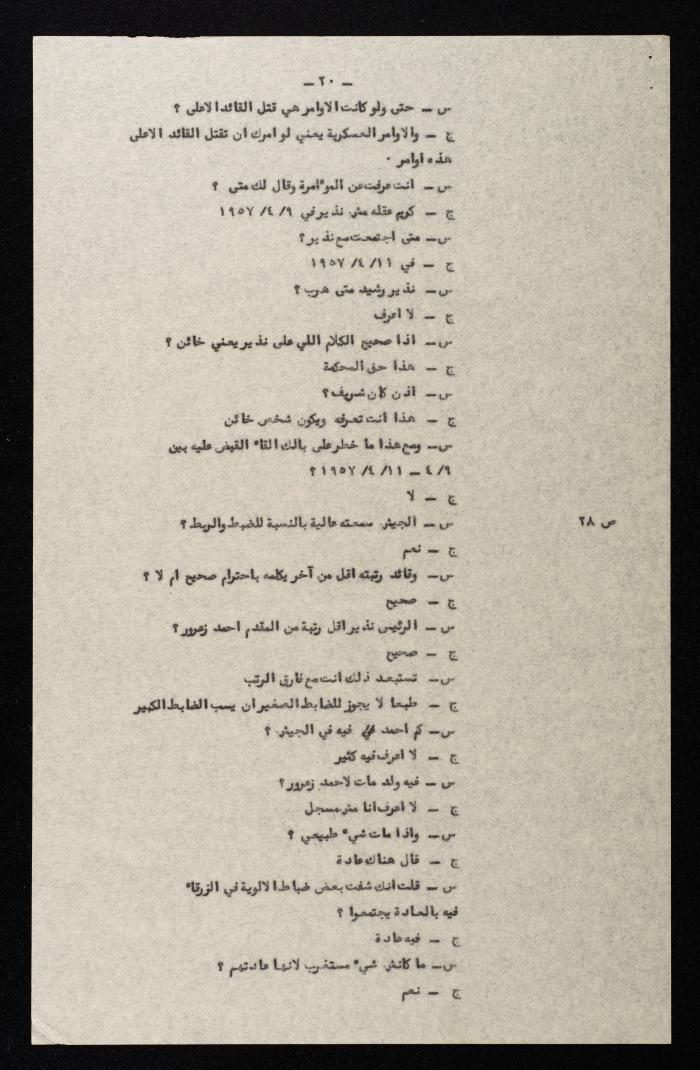 — ٢٠ —
س — حتى ولو كانت الاوامر هي قتل القائد الاعلى ؟
ج — والاوامر العسكرية يعني لو امرك ان تقتل القائد الاعلى
هذه اوامر .
س — انت عرفت عن المو ًامرة وقال لك متى ؟
ج — كريم عقله مش نذير في ٩/ ٤/ ١٩٥٧
س — متى اجتمعت مع نذير ؟
ج — في ١١/ ٤/ ١٩٥٧
س — نذير رشيد متى هرب ؟
ج — لا اعرف
س — اذا صحيح الكلام اللي على نذير يعني خائن ؟
ج — هذا حق المحكمة
س — اذن كان شريف ؟
ج — هذا انت تعرفه ويكون شخص خائن
س — ومع هذا ما خطر على بالك القاء القبض عليه بين
٩/ ٤ — ١١/ ٤/ ١٩٥٧ ؟
ج — لا
ص ٢٨ س — الجيش سمعته عالية بالنسبة للضبط والربط ؟
ج — نعم
س — وقائد رتبته اقل من آخر يكلمه باحترام صحيح ام لا ؟
ج — صحيح
س — الرئيس نذير اقل رتبة من المقدم احمد زعرور ؟
ج — صحيح
س — تستبعد ذلك انت مع فارق الرتب
ج — طبعا لا يجوز للضابط الصغير ان يسب الضابط الكبير
س — كم احمد فيه في الجيش ؟
ج — لا اعرف فيه كثير
س — فيه ولد مات لاحمد زعرور ؟
ج — لا اعرف انا مش مسجل
س — واذا مات شيء طبيعي ؟
ج — قال هناك عادة
س — قلت انك شفت بعض ضباط الالوية في الزرقاء
فيه بالعادة يجتمعوا ؟
ج — فيه عادة
س — ما كانش شيء مستغرب لانها عادتهم ؟
ج — نعم